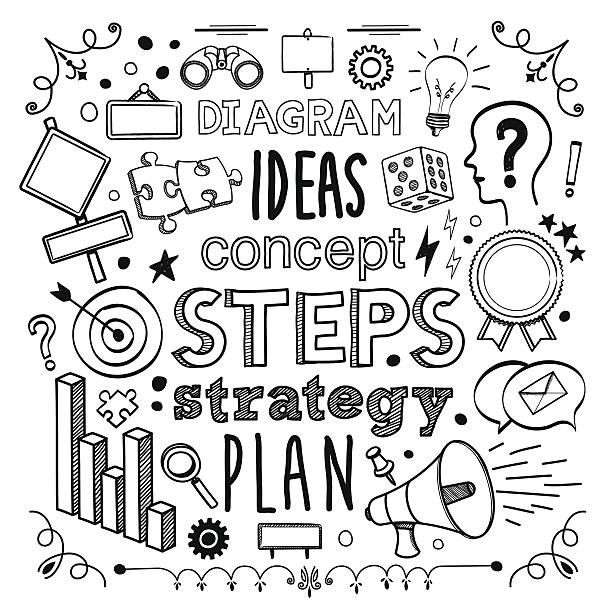 DIAGRAM
IDEAS
?
!
concept
STEPS
?
strategy
PLAN